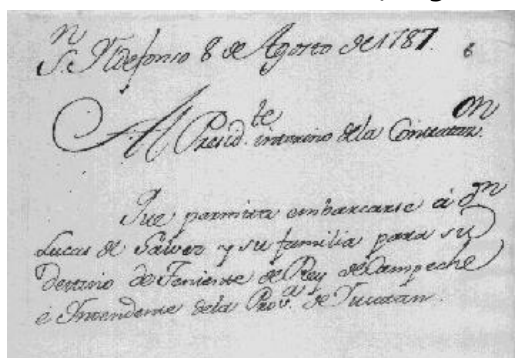 Sn. Yldefonso 8 de Agosto de 1787.
Al Presidte. interino de la Contraton.
Que permita embarcarse á Dn
Lucas de Galvez y su familia para su
Destino de Teniente de Rey de Campeche
é Intendente dela Prova. de Yucatan.